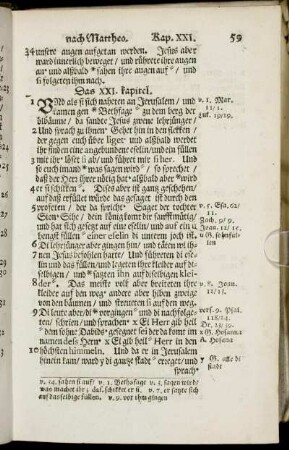 nach Mattheo. Kap. XXI. 59
34 unsere augen aufgetan werden. Jesus aber
ward innerlich beweget / und rührete ihre augen
an und alßbald * sahen ihre augen auf / und
si folgeten ihm nach.
Das XXI. kapitel.
1 UNd als si sich näherten an Jerusalem / und
kamen gen * Bethfage zu dem berg der
ölbäume / da sandte Jesus zweene lehrjünger /
2 Und sprach zu ihnen: Gehet hin in den flekken /
der gegen euch über liget: und alßbald werdet
ihr finden eine angebundene eselin / und ein füllen
mit ihr: löset si ab / und führet mir si her. Und
so euch imand was sagen wird / so sprechet /
daß der Herr ihrer nötig hat: alßbald aber wird
er si schikken. Dises aber ist ganz geschehen /
auf daß erfüllet würde das gesaget ist durch den
profeten / der da spricht: Saget der tochter
Sion: Sihe / dein könig komt dir sanftmütig /
und hat sich gesetzt auf eine eselin / und auf ein
füllen einer eselin
6 Di lehrjünger aber gingen hin / und täten wi ihnen
Jesus befohlen hatte. Und führeten di eselin
und das füllen / und legeten ihre kleider auf diselbigen /
und * sazten ihn auf diselbigen kleider.
8 Das meiste volk aber breiteten ihre
kleider auf den weg: andere aber hiben zweige
von den bäumen / und streueten si auf den weg.
9 Di leute aber / di * vorgingen * und di nachfolgeten /
schrien / und sprachen: * El Herr hilf
* dem sohne Davids: gesegnet sei der da komt im
namen deß Herrn * El hilf * Herr in den
10 höchsten himmeln. Und da er in Jerusalem
hinein kam / ward * di ganze stadt * erreget / und
sprach:
v. 1. Mar.
11/1.
Luk. 19/19.
v. 5. Esa. 62/
11.
Zach. 9/9.
Joan. 12/15.
v. 8. Joan.
12/13.
vers. 9. Psal.
118/24.
G. Hosanna
A. Hosana
G. alle di
stadt
v. 34. sahen si auf / v. 1. Bethfage v. 3. sagen wird /
was machet ihr? v. 7. er sazte sich
auf dasselbige füllen. v. 9. vor ihm gingen